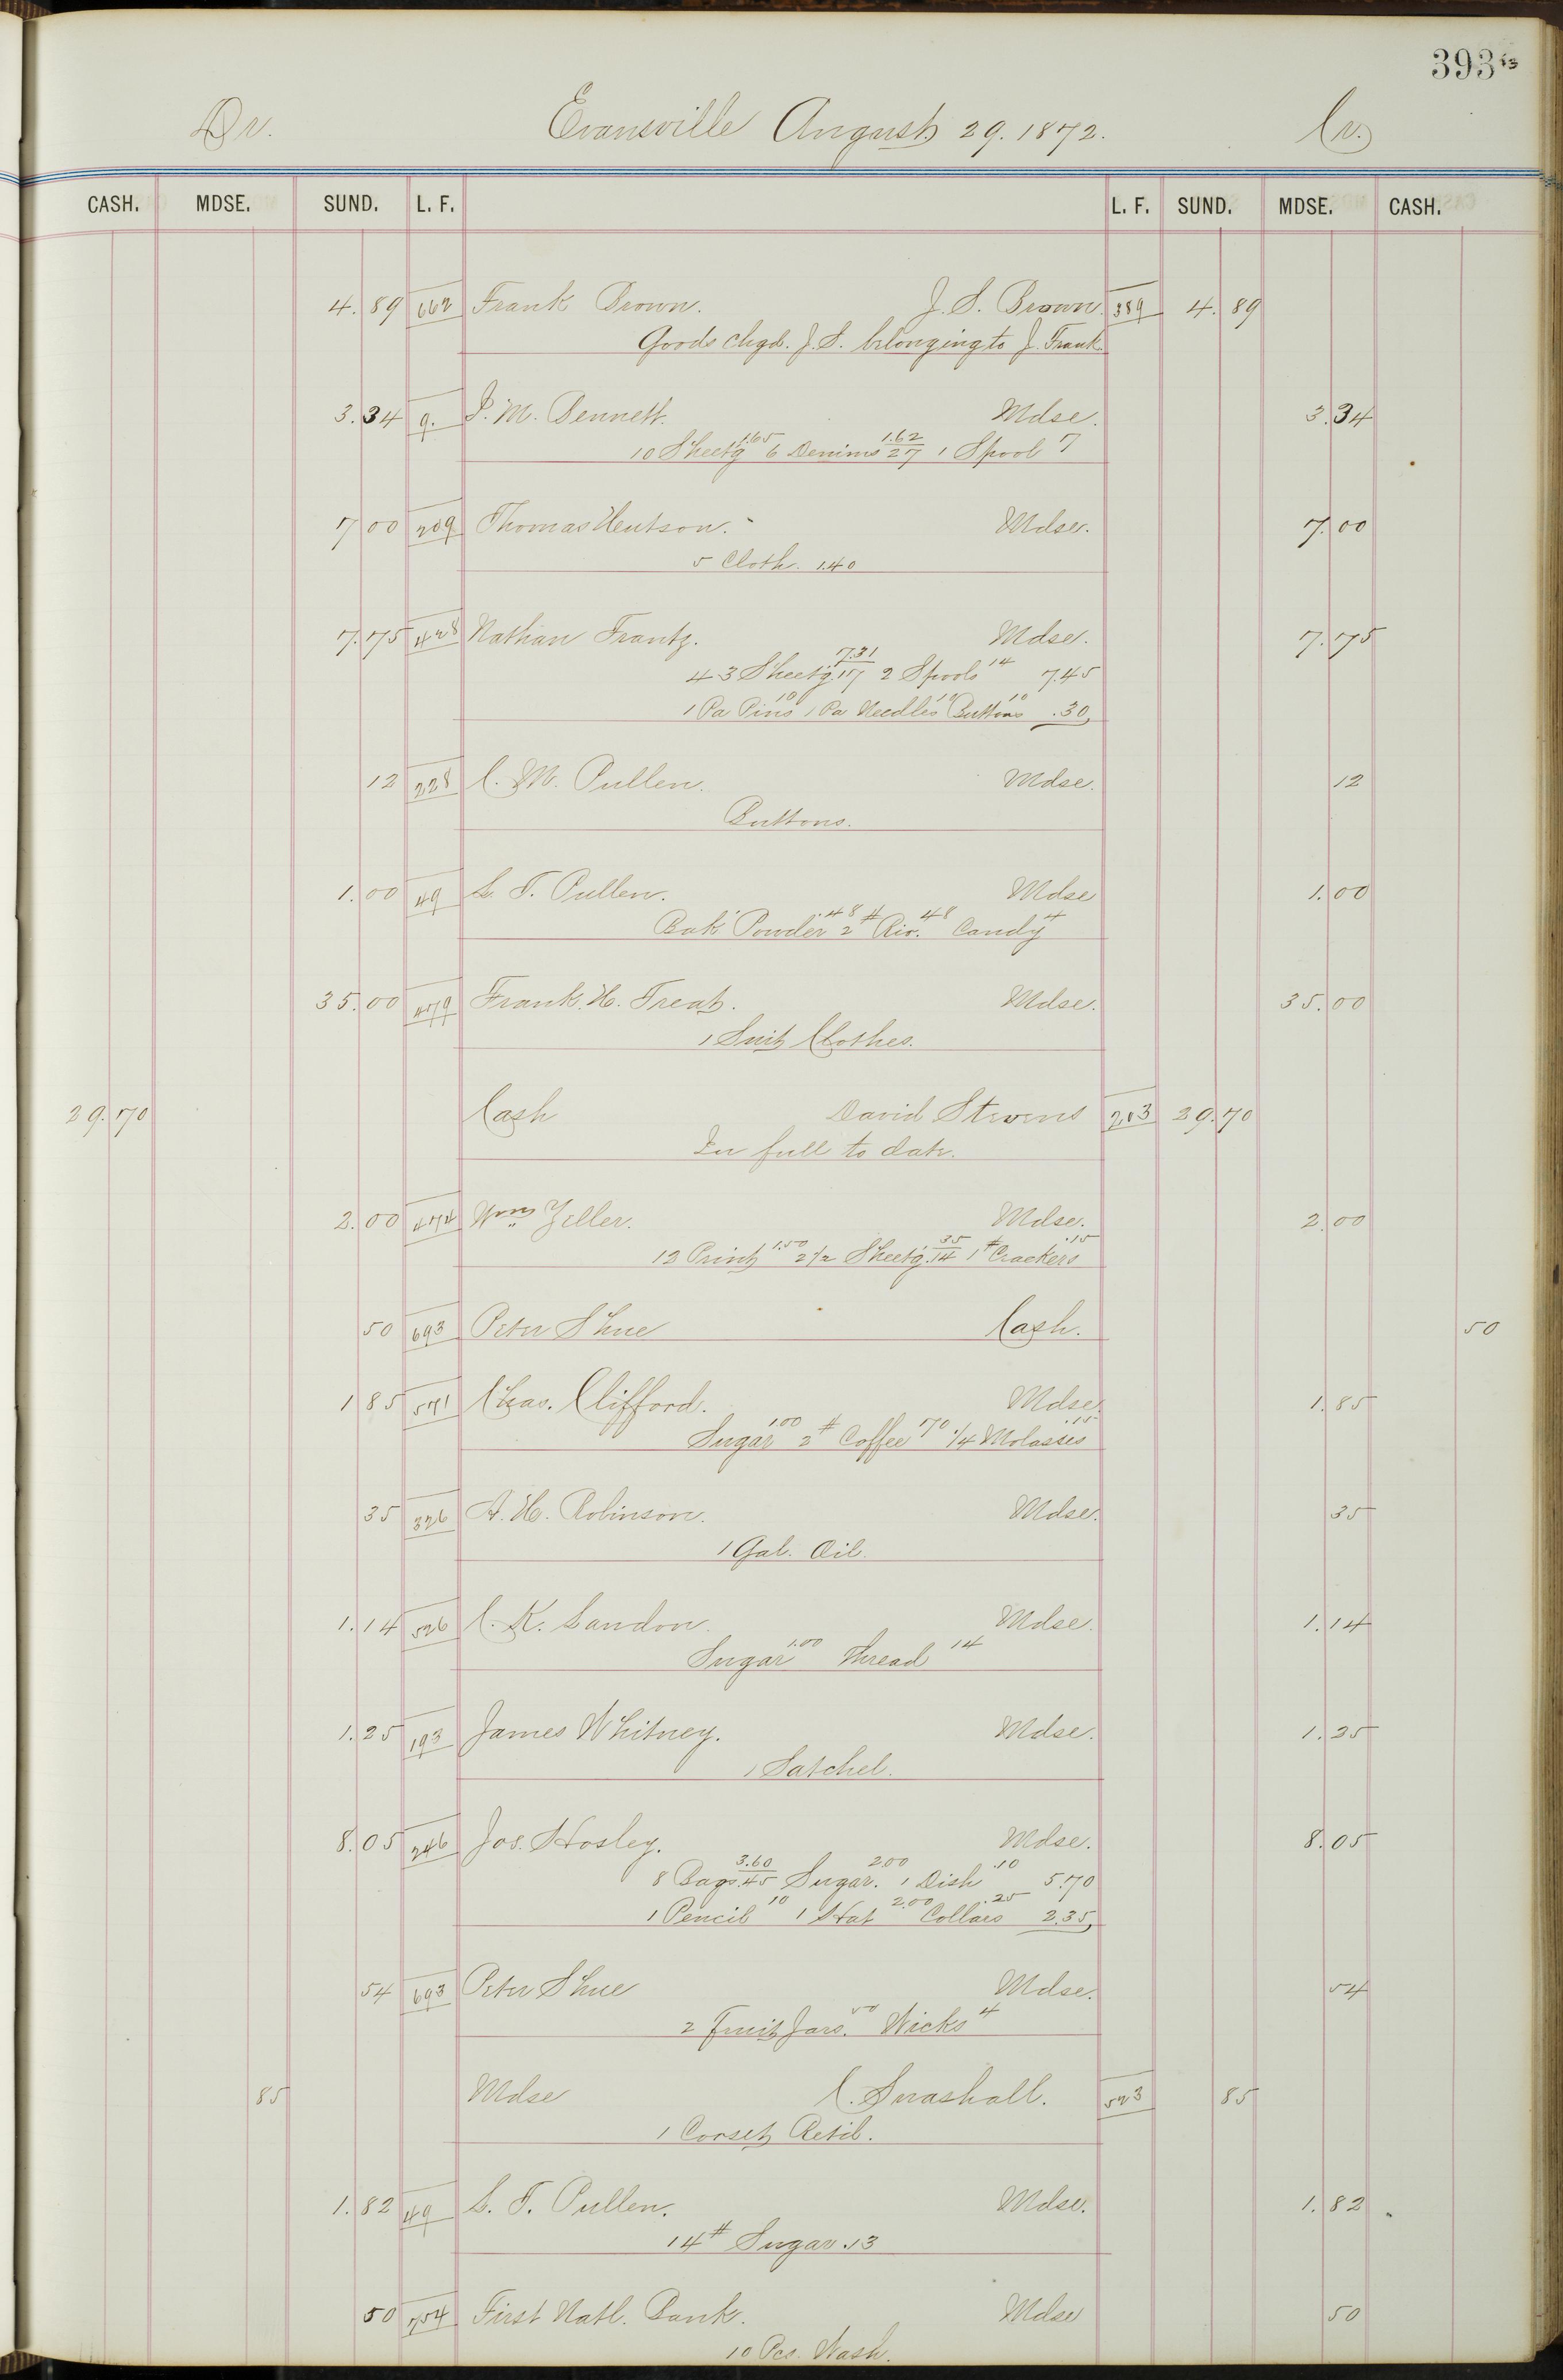 393 13
Dr. Evansville August 29. 1872. Cr.
CASH. MDSE. SUND. L. F. L. F. SUND. MDSE. CASH.
4.89 662 Frank Brown. J. S. Brown. 389 4.89
Goods chgd. J. S. belonging to J. Frank
3.34 9. I. M. Bennett. Mdse. 3.34
10 Sheetg 1.65 6 Denims 1.62/27 1 Spool 7
7 00 209 Thomas Heutson. Mdse. 7.00
5 Cloth. 1.40
7.75 428 Nathan Frantz. Mdse. 7.75
43 Sheetg. 7.31/.17 2 Spools 14 7.45
1 Pa Pins 10 1 Pa Needles 10 Buttons 10 .30
12 228 C. M. Pullen. Mdse. 12
Buttons.
1.00 49 L. T. Pullen. Mdse 1.00
Bak Powder .48 2# Rio. 48 Candy 4
35.00 479 Frank. H. Treat. Mdse. 35.00
1 Suit Clothes.
29.70 Cash David Stevens 203 29.70
In full to date.
2.00 474 Wm Zeller. Mdse. 2.00
12 Print 1.50 2 1/2 Sheetg. 35/.14 1# Crackers .15
50 693 Peter Shue Cash. 50
1 85 571 Chas. Clifford. Mdse. 1.85
Sugar 1.00 2# Coffee 70 1/4 Molasses .15
35 326 A. H. Robinson. Mdse. 35
1 Gal. Oil.
1.14 526 C. K. Landon. Mdse. 1.14
Sugar 1.00 Thread 14
1.25 193 James Whitney. Mdse. 1.25
1 Satchel.
8.05 246 Jos. Hosley. Mdse. 8.05
8 Bags 3.60/.45 Sugar. 2.00 1 Dish .10 5.70
1 Pencil 10 1 Hat 2.00 Collars .25 2.35
54 693 Peter Shue Mdse. 54
2 Fruit Jars. 50 Wicks 4
85 Mdse C. Snashall. 523 85
1 Corset Retd.
1.82 49 L. T. Pullen. Mdse. 1.82
14# Sugar .13
50 754 First Natl. Bank. Mdse 50
10 Pcs. Wash.